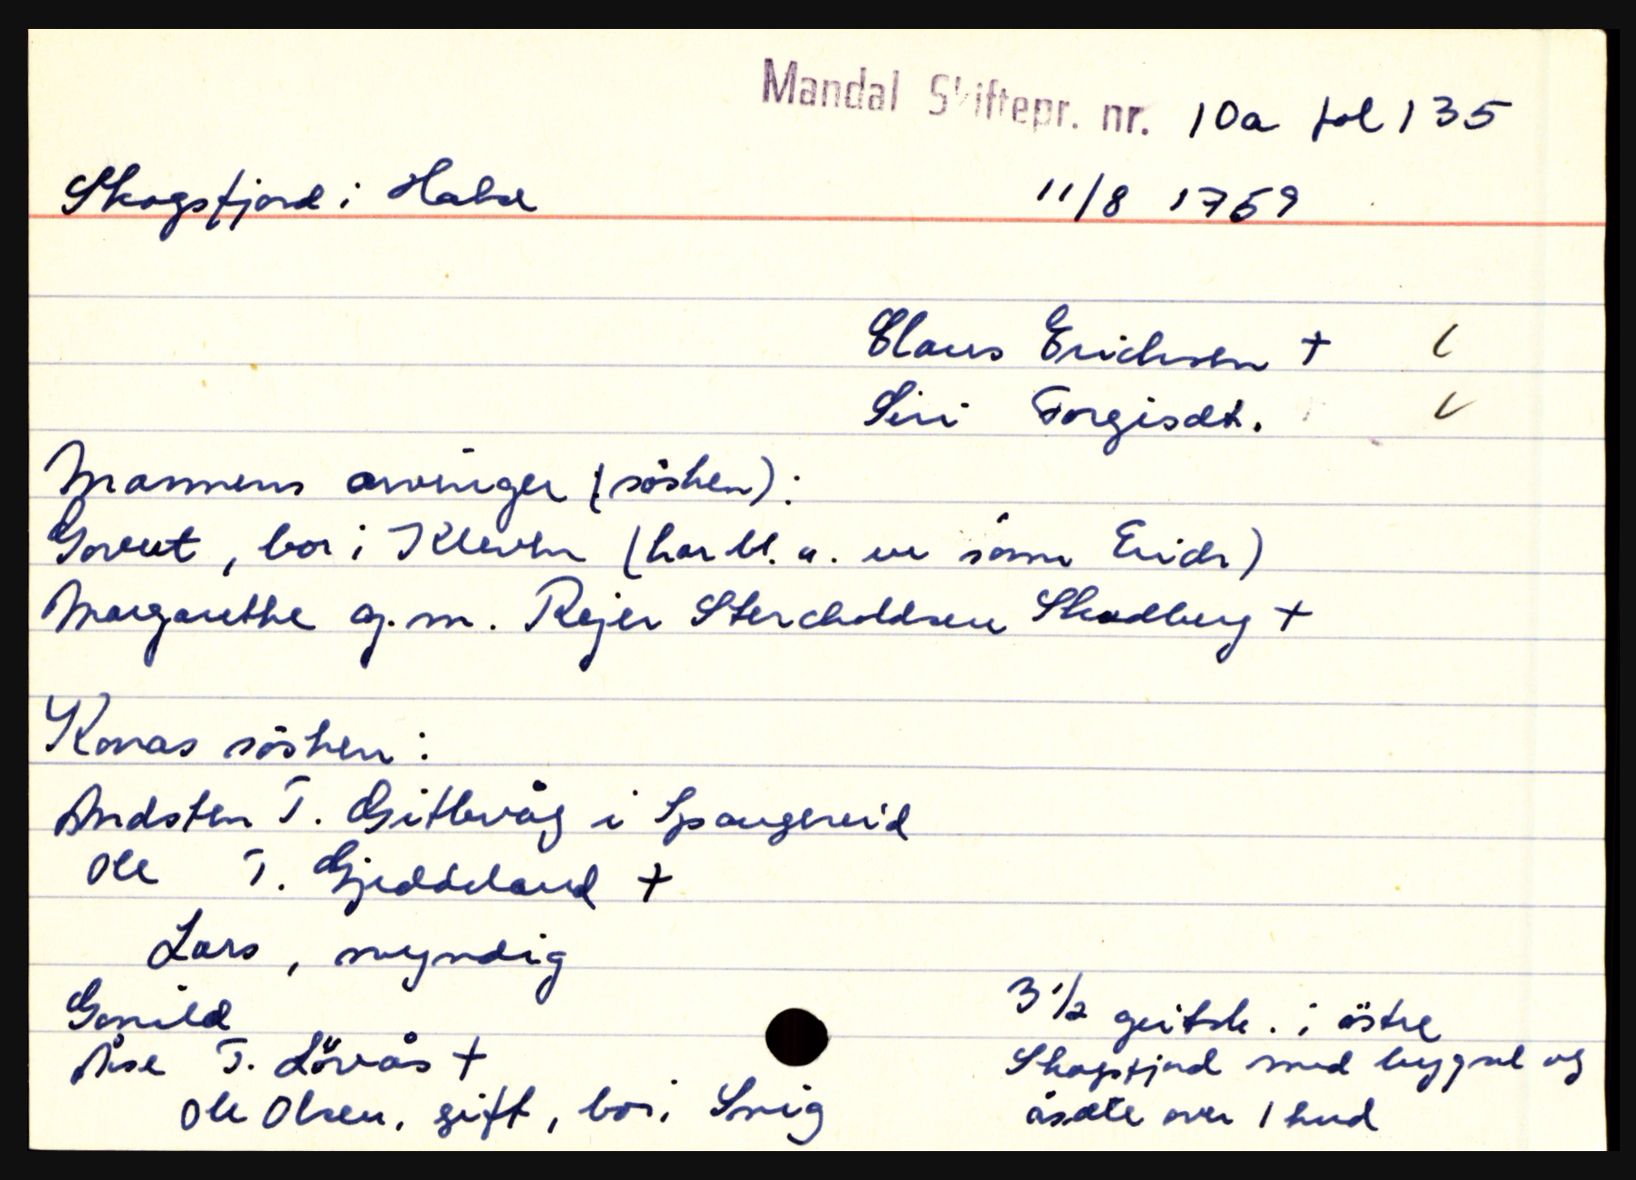 Mandal Skiftepr. nr. 10a fol 135
Skogsfjord i Halse 11/8 1769
Claus Erichsen +
Siri Torgisdt.
Mannens arvinger (søsken):
Govert, bor i Kleven (har bl. a. en sønn Erich)
Margarethe g. m. Rejer Stercholdsen Skadberg +
Konas søsken:
Andsten T. Gitlevåg i Spangereid
Ole T. Gjeddeland +
Lars, myndig
Gonild
Åse T. Lövås +
Ole Olsen, gift, bor i Snig
3 1/2 geitsk. i östre
Skogsfjord med bygsel og
åsæte over 1 hud